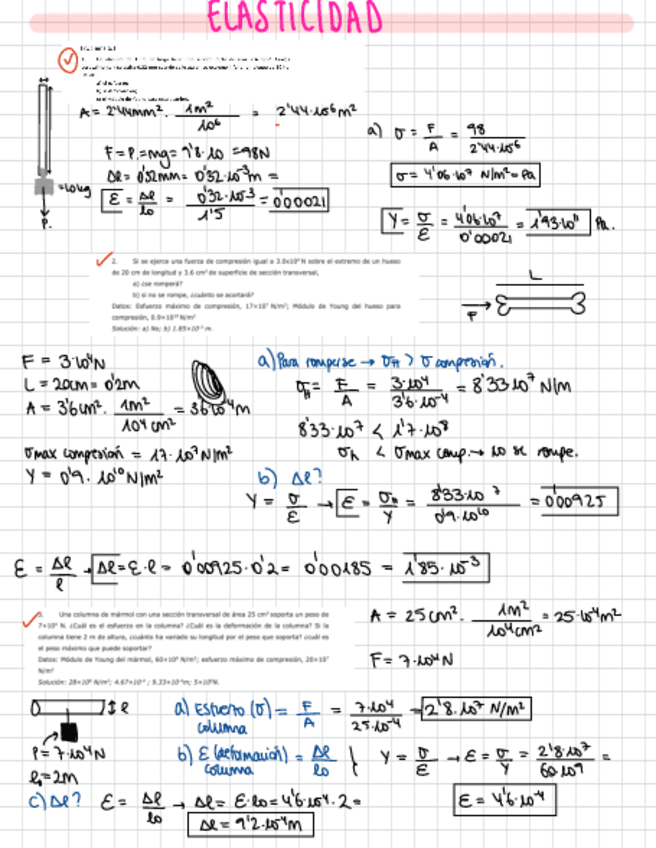 ELASTICIDAD
A = 2'44mm². 1m² / 10⁶ = 2'44·10⁻⁶m²
F = P = mg = 9'8·10 = 98N
Δl = 0'32mm = 0'32·10⁻³m =
ε = Δl / l₀ = 0'32·10⁻³ / 1'5 = 0'00021
= 10kg
P.
a) σ = F / A = 98 / 2'44·10⁻⁶
σ = 4'06·10⁷ N/m² = Pa
Y = σ / ε = 4'06·10⁷ / 0'00021 = 1'93·10¹¹ Pa.
2. Si se ejerce una fuerza de compresión igual a 3.0x10⁴ N sobre el extremo de un hueso
de 20 cm de longitud y 3.6 cm² de superficie de sección transversal,
a) ¿se romperá?
b) si no se rompe, ¿cuánto se acortará?
Datos: Esfuerzo máximo de compresión, 17×10⁷ N/m²; Módulo de Young del hueso para
compresión, 0.9×10¹⁰ N/m²
Solución: a) No; b) 1.85×10⁻³ m.
L
F
F = 3·10⁴N
L = 20cm = 0'2m
A = 3'6cm². 1m² / 10⁴cm² = 3'6·10⁻⁴m
σmax compresión = 17·10⁷N/m²
Y = 0'9·10¹⁰N/m²
a) Para romperse → σH > σ compresión.
σH = F / A = 3·10⁴ / 3'6·10⁻⁴ = 8'33·10⁷ N/m
8'33·10⁷ < 1'7·10⁸
σH < σmax comp. → no se rompe.
b) Δl?
Y = σ / ε → ε = σH / Y = 8'33·10⁷ / 0'9·10¹⁰ = 0'00925
ε = Δl / l → Δl = ε·l = 0'00925·0'2 = 0'00185 = 1'85·10⁻³
3. Una columna de mármol con una sección transversal de área 25 cm² soporta un peso de
7×10⁴ N. ¿Cuál es el esfuerzo en la columna? ¿Cuál es la deformación de la columna? Si la
columna tiene 2 m de altura, ¿cuánto ha variado su longitud por el peso que soporta? ¿cuál es
el peso máximo que puede soportar?
Datos: Módulo de Young del mármol, 60×10⁹ N/m²; esfuerzo máximo de compresión, 20×10⁷
N/m²
Solución: 28×10⁶ N/m²; 4.67×10⁻⁴; 9.33×10⁻⁴m; 5×10⁵N.
A = 25cm². 1m² / 10⁴cm² = 25·10⁻⁴m²
F = 7·10⁴N
l
P = 7·10⁴N
l₀ = 2m
a) Esfuerzo (σ) columna = F / A = 7·10⁴ / 25·10⁻⁴ = 2'8·10⁷ N/m²
b) ε (deformación) columna = Δl / l₀ } Y = σ / ε → ε = σ / Y = 2'8·10⁷ / 60·10⁹ =
ε = 4'6·10⁻⁴
c) Δl? ε = Δl / l₀ → Δl = ε·l₀ = 4'6·10⁻⁴·2 =
Δl = 9'2·10⁻⁴m